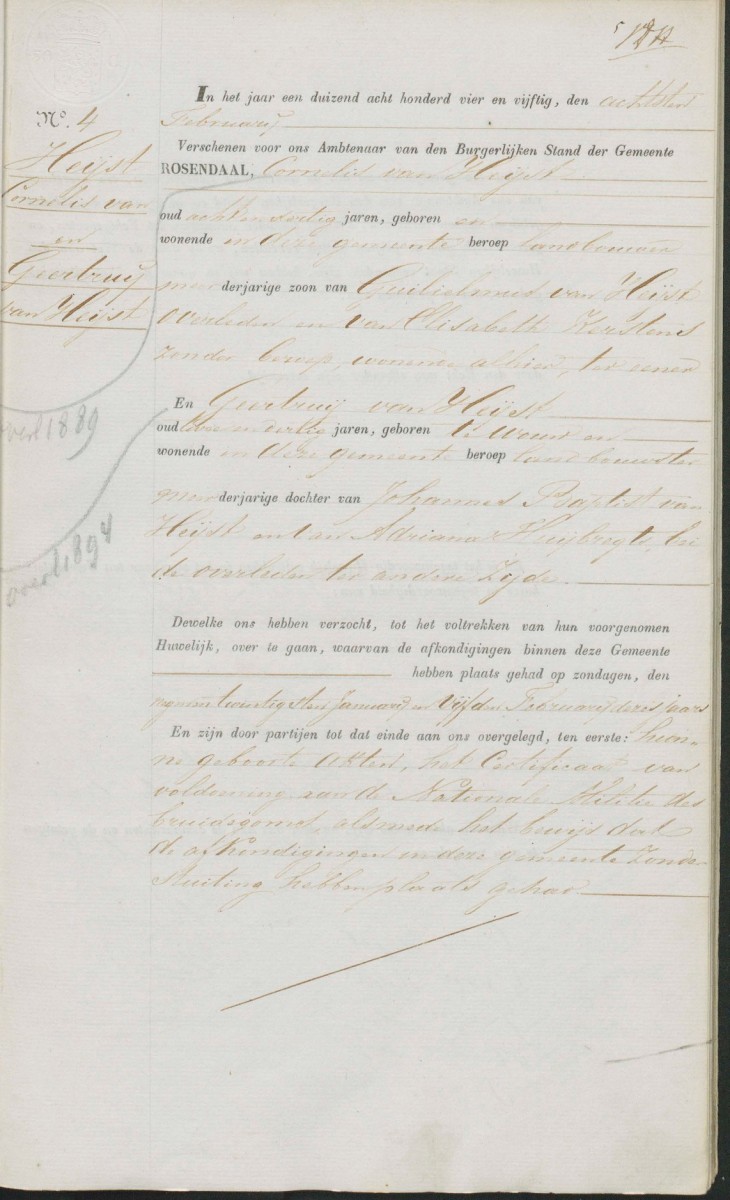 In het jaar een duizend acht honderd vier en vijftig, den achtsten
Februarij
Verschenen voor ons Ambtenaar van den Burgerlijken Stand der Gemeente
ROSENDAAL, Cornelis van Heijst
oud acht en veertig jaren, geboren en
wonende in deze gemeente beroep landbouwer
meerderjarige zoon van Guilielmus van Heijst
overleden en van Elisabeth Kerstens
zonder beroep, wonende alhier, ter eener
En Geertruij van Heijst
oud en veertig jaren, geboren te Wouw en
wonende in deze gemeente beroep landbouwster
meerderjarige dochter van Johannes Baptist van
Heijst en van Adriana Huijbregts, bei
de overleden ter andere zyde
Dewelke ons hebben verzocht, tot het voltrekken van hun voorgenomen
Huwelijk, over te gaan, waarvan de afkondigingen binnen deze Gemeente
hebben plaats gehad op zondagen, den
negenentwintigsten Januarij en Vijfden Februarij dezes jaars
En zijn door partijen tot dat einde aan ons overgelegd, ten eerste: hun
ne geboorte akten, het Certificaat van
voldoening aan de Nationale Militie des
bruidegoms, alsmede het bewijs dat
de afkondigingen in deze gemeente zonder
stuiting hebben plaats gehad
No. 4
Heijst
Cornelis van
en
Geertruij
van Heijst
overl 1889
overl 1894